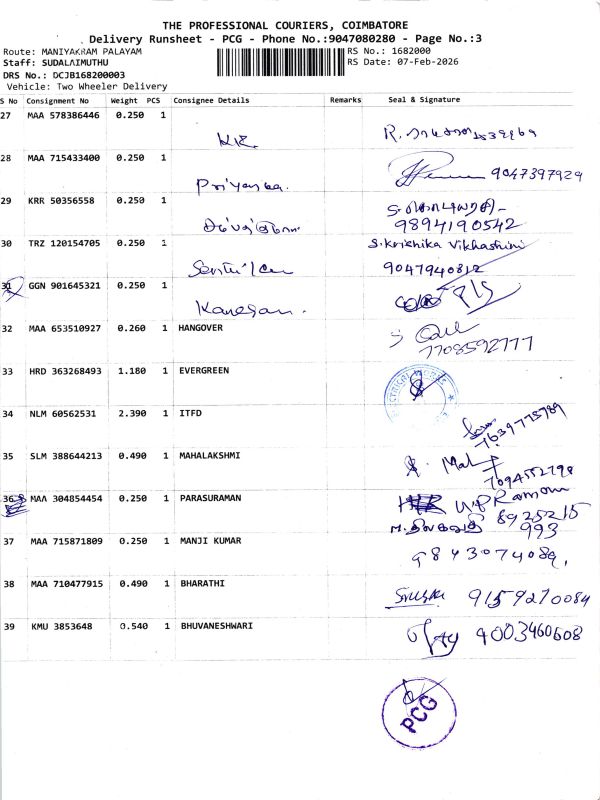 THE PROFESSIONAL COURIERS, COIMBATORE
Delivery Runsheet - PCG - Phone No.:9047080280 - Page No.:3
Route: MANIYAKRAM PALAYAM
RS No.: 1682000
Staff: SUDALAIMUTHU
RS Date: 07-Feb-2026
DRS No.: DCJB168200003
Vehicle: Two Wheeler Delivery
S No Consignment No Weight PCS Consignee Details Remarks Seal & Signature
27 MAA 578386446 0.250 1
28 MAA 715433400 0.250 1
Priyanka. 9047397929
29 KRR 50356558 0.250 1
9894190542
30 TRZ 120154705 0.250 1 S.krithika Vikhashini
9047940812
31 GGN 901645321 0.250 1
Kanesan.
32 MAA 653510927 0.260 1 HANGOVER
7708592777
33 HRD 363268493 1.180 1 EVERGREEN
34 NLM 60562531 2.390 1 ITFD
7639775789
35 SLM 388644213 0.490 1 MAHALAKSHMI
7094552798
36 MAA 304854454 0.250 1 PARASURAMAN
8925215
993
37 MAA 715871809 0.250 1 MANJI KUMAR
9843074089,
38 MAA 710477915 0.490 1 BHARATHI
9159270084
39 KMU 3853648 0.540 1 BHUVANESHWARI
9003460608
PCG